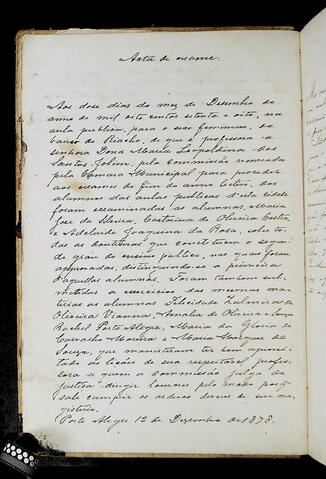 Acta de exame.
Aos dose dias do mez de Desembro do
anno de mil oito centos setenta e oito, na
aula publica, para o sexo femenino, do
bairro do Riacho, de que é professora a
senhora Dona Maria Leopoldina dos
Santos Jobim, pela Commissão nomeada
pela Camara Municipal para proceder
aos exames do fim do anno lectivo, dos
alumnos das aulas publicas d'esta cidade
foram examinadas as alumnas, Maria
José da Silveira, de Oliveira Castro
e Adelaide Joaquina da Rosa, sobre to-
das as doutrinas que constituem o segun-
do grau do ensino publico, nas quaes foram
approvadas, distinguindo-se a primeira
d'aquellas alumnas. Foram tambem sub-
mettidas a exercicios das mesmas ma-
terias as alumnas Felicidade Zulmira de
Oliveira Vianna, Amalia de Oliveira e Souza
Rachel Porto Alegre, Maria da Gloria de
Carvalho Moreira e Maria Marques de
Souza, que mostraram ter bem aprovei-
tado as lições de sua respeitavel profes-
sora a quem a commissão julga de
justiça dirigir louvores pelo modo por que
sabe cumprir os arduos deveres de seu ma-
gisterio.
Porto Alegre 12 de Dezembro de 1878.